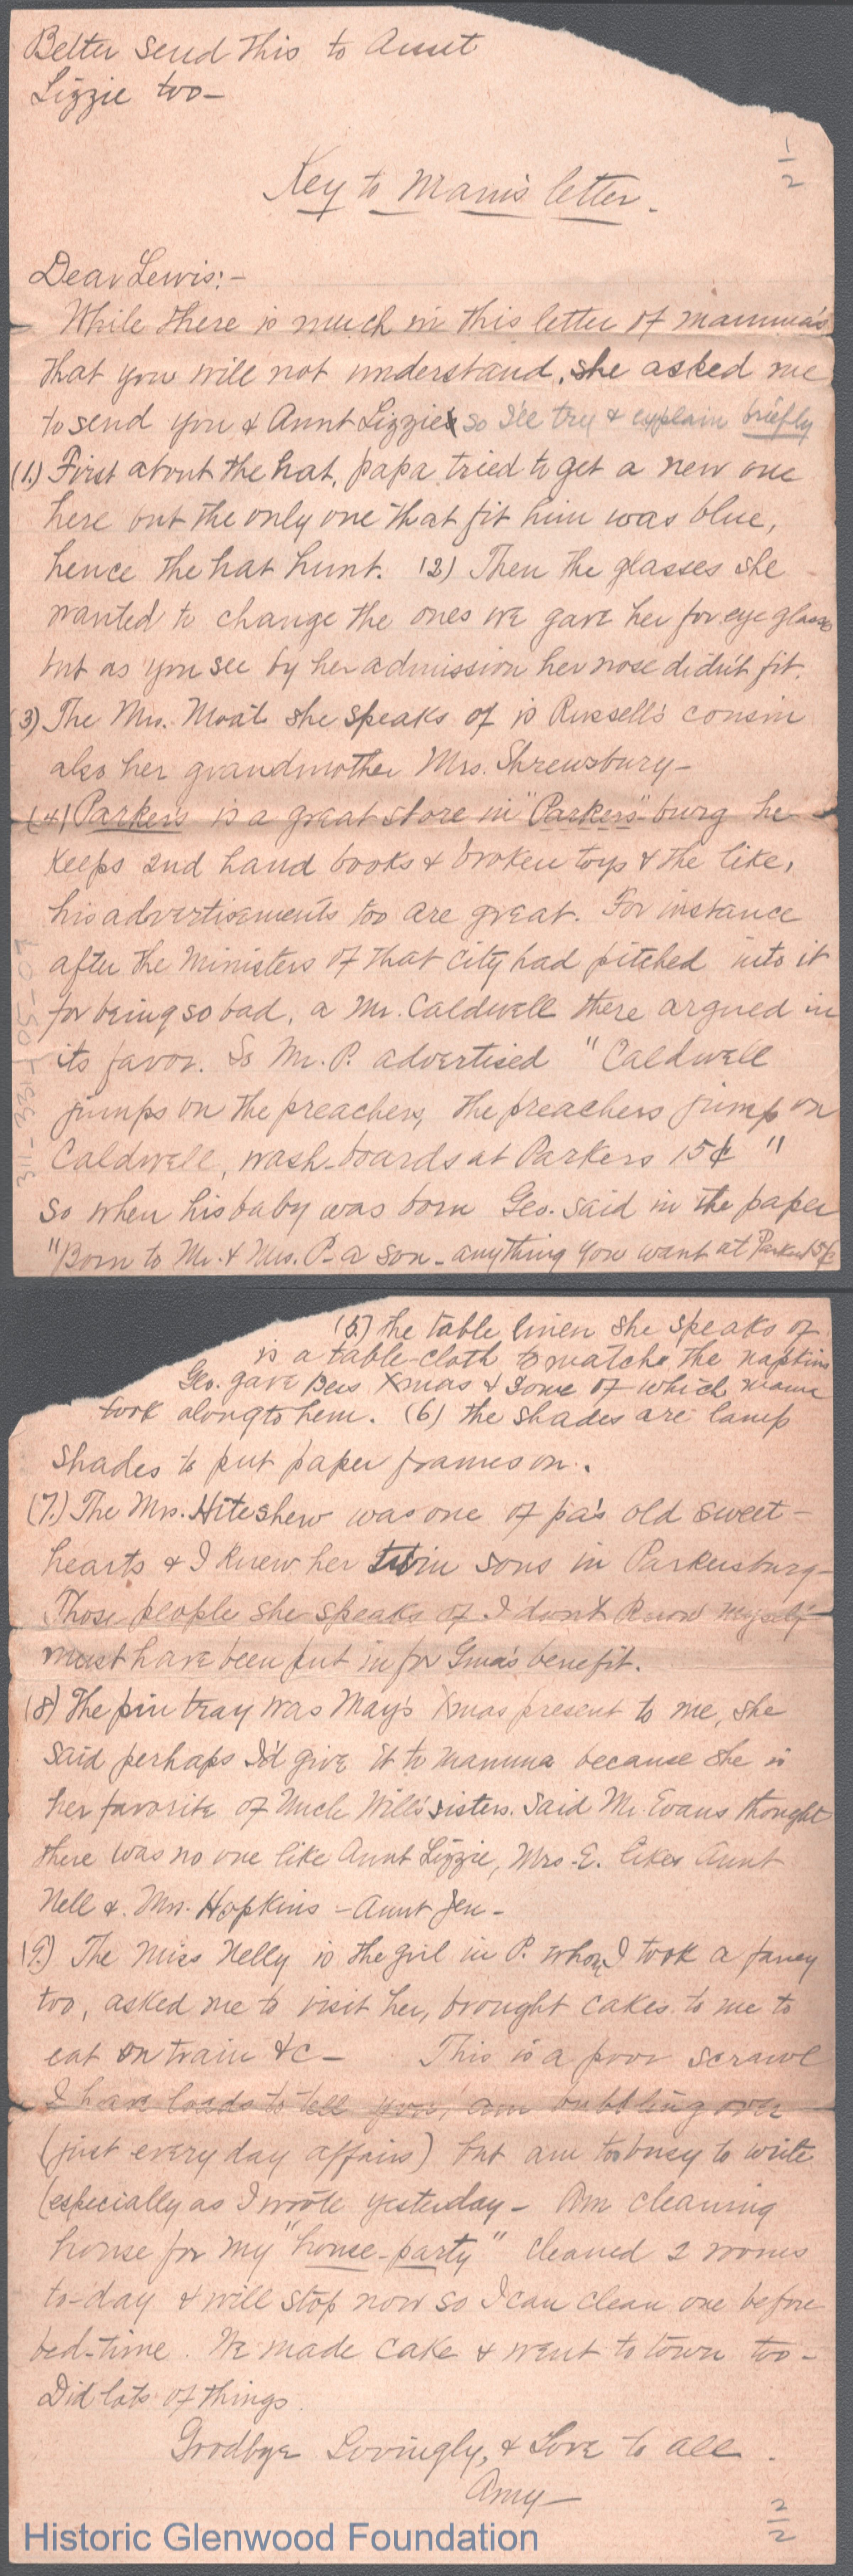 Better send this to Aunt
Lizzie too—
1/2
Key to Mam's letter.
Dear Lewis:—
While there is much in this letter of mamma's
that you will not understand, she asked me
to send you & Aunt Lizzie so I'll try & explain briefly
(1.) First about the hat, papa tried to get a new one
here but the only one that fit him was blue,
hence the hat hunt. (2) Then the glasses she
wanted to change the ones we gave her for eye glasses
but as you see by her admission her nose didn't fit.
(3) The Mrs. Moats she speaks of is Russell's cousin
also her grandmother Mrs. Shrewsbury—
(4) Parkers is a great store in "Parkers"-burg he
keeps 2nd hand books & broken toys & the like,
his advertisements too are great. For instance
after the ministers of that city had pitched into it
for being so bad, a Mr. Caldwell there argued in
its favor. So Mr. P. advertised "Caldwell
jumps on the preachers, the preachers jump on
Caldwell, wash-boards at Parkers 15¢"
So when his baby was born Geo. said in the paper
"Born to Mr. & Mrs. P— a son— anything you want at Parkers 15¢
311-331-05-07
(5.) the table linen she speaks of
is a table-cloth to matche the napkins
Geo. gave Bess Xmas & some of which mama
took along to hem. (6) the shades are lamp
shades to put paper frames on.
(7.) The Mrs. Hiteshew was one of pa's old sweet-
hearts & I knew her twin sons in Parkersburg—
Those people she speaks of I don't know myself
must have been put in for Gma's benefit.
(8) The pin tray was May's Xmas present to me, she
said perhaps I'd give it to mamma because she is
her favorite of Uncle Will's sisters. Said Mr. Evans thought
there was no one like Aunt Lizzie, Mrs. E. likes Aunt
Nell & Mrs. Hopkins — Aunt Jen—
(9.) The Miss Nelly is the girl in P. whom I took a fancy
too, asked me to visit her, brought cakes to me to
eat on train &c— This is a poor scrawl
I have loads to tell you, am bubbling over
(just every day affairs) but am too busy to write
(especially as I wrote yesterday— Am cleaning
house for my "house-party" cleaned 2 rooms
to-day & will stop now so I can clean one before
bed-time. We made cake & went to town too—
Did lots of things.
Goodbye Lovingly, & Love to all.
Amy—
2/2
Historic Glenwood Foundation